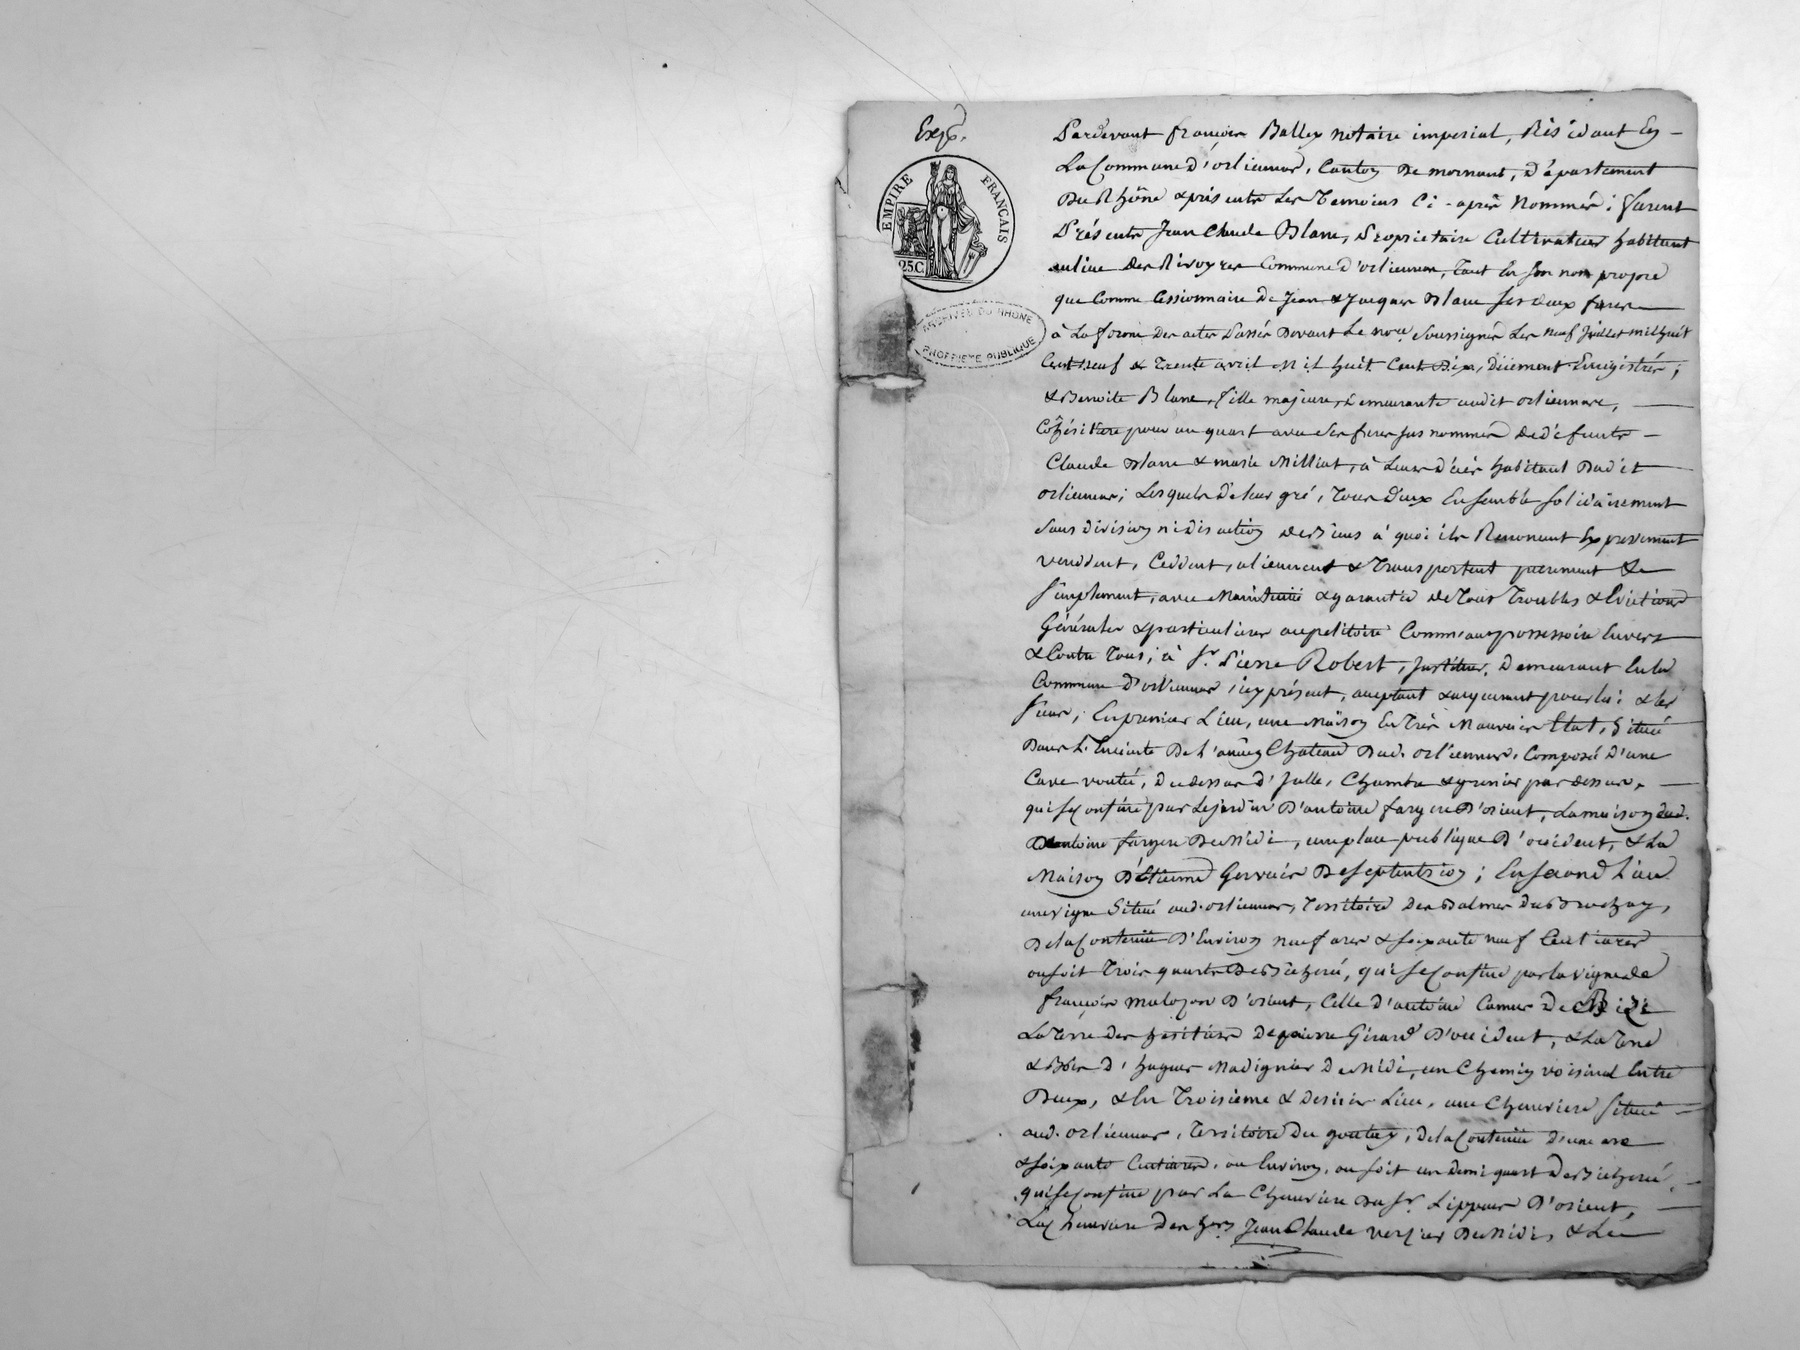 Exp.
EMPIRE FRANÇAIS
25C
ARCHIVES DU RHÔNE
PROPRIÉTÉ PUBLIQUE
Pardevant françois Balley notaire imperial, Résidant En
La Commune d'orlienas, Canton De mornant, Département
Du Rhône & présents Les Temoins Ci-après Nommés; furent
Présents Jean Claude Blanc, Proprietaire Cultivateur habitant
au lieu des Rivoyres Commune d'orlienas, Tant En son nom propre
que Comme Cessionnaire De Jean & Jacques Blanc ses deux freres
à La forme Des actes Passés Devant Le nore. Soussigné Les neuf Juillet mil huit
Cent neuf & Trente avril Mil huit Cent Dix, Düement Enregistrés;
& Benoite Blanc, fille majeure, demeurante audit orlienas,
Cohéritiere pour un quart avec Ses freres sus nommés de défunts
Claude Blanc & marie Milliat, à Leurs décès habitant Dudit
orlienas; Lesquels De Leur gré, Tous deux Ensemble solidairement
Sans division ni discution de Biens à quoi ils Renoncent Expressement
vendent, Ceddent, alienent & Transportent purement &
simplement, avec Maintenüe & garantie de Tous Troubles & Evictions
Générales & particulieres au petitoire Comme au possessoire Envers
& Contre Tous; à Sr. Pierre Robert, Demeurant En la
Commune D'orlienas, icy présent, acceptant & acquerant pour lui & les
siens; En premier Lieu, une Maison En Très Mauvais Etat, Situé
Dans L'Enceinte De L'ancien Chateau Dud. orlienas, Composé D'une
Cave voutée, Au dessus d'Salle, Chambre & grenier par dessus,
qui se Confine par Le jardin D'antoine fargere D'orient, La maison dud.
antoine fargere De Midi, une place publique D'occident, & La
Maison D'Etienne Gervais De Septentrion; En Second Lieu
une vigne Situé aud. orlienas, Territoire Des Balmes
De la Contenüe D'Environ neuf ares & soixante neuf Centiares
ou soit Trois quarts De Bicherée, qui se Confine par la vigne de
françois D'orient, Celle d'antoine Camus De Midi
La Terre des heritiers De pierre Girard D'occident, & La Terre
& Bois d'hugues Madignier De Midi, un Chemin voisinal Entre
Deux, & En Troisieme & Dernier Lieu, une Cheneviere Situé
aud. orlienas, Territoire Du De la Contenüe d'une are
& soixante Centiares, ou Environ, ou soit un Demi quart De Bicherée,
qui se Confine par La Cheneviere Du Sr. D'orient,
La Cheneviere Des hers. Jean Claude De Midi, & La